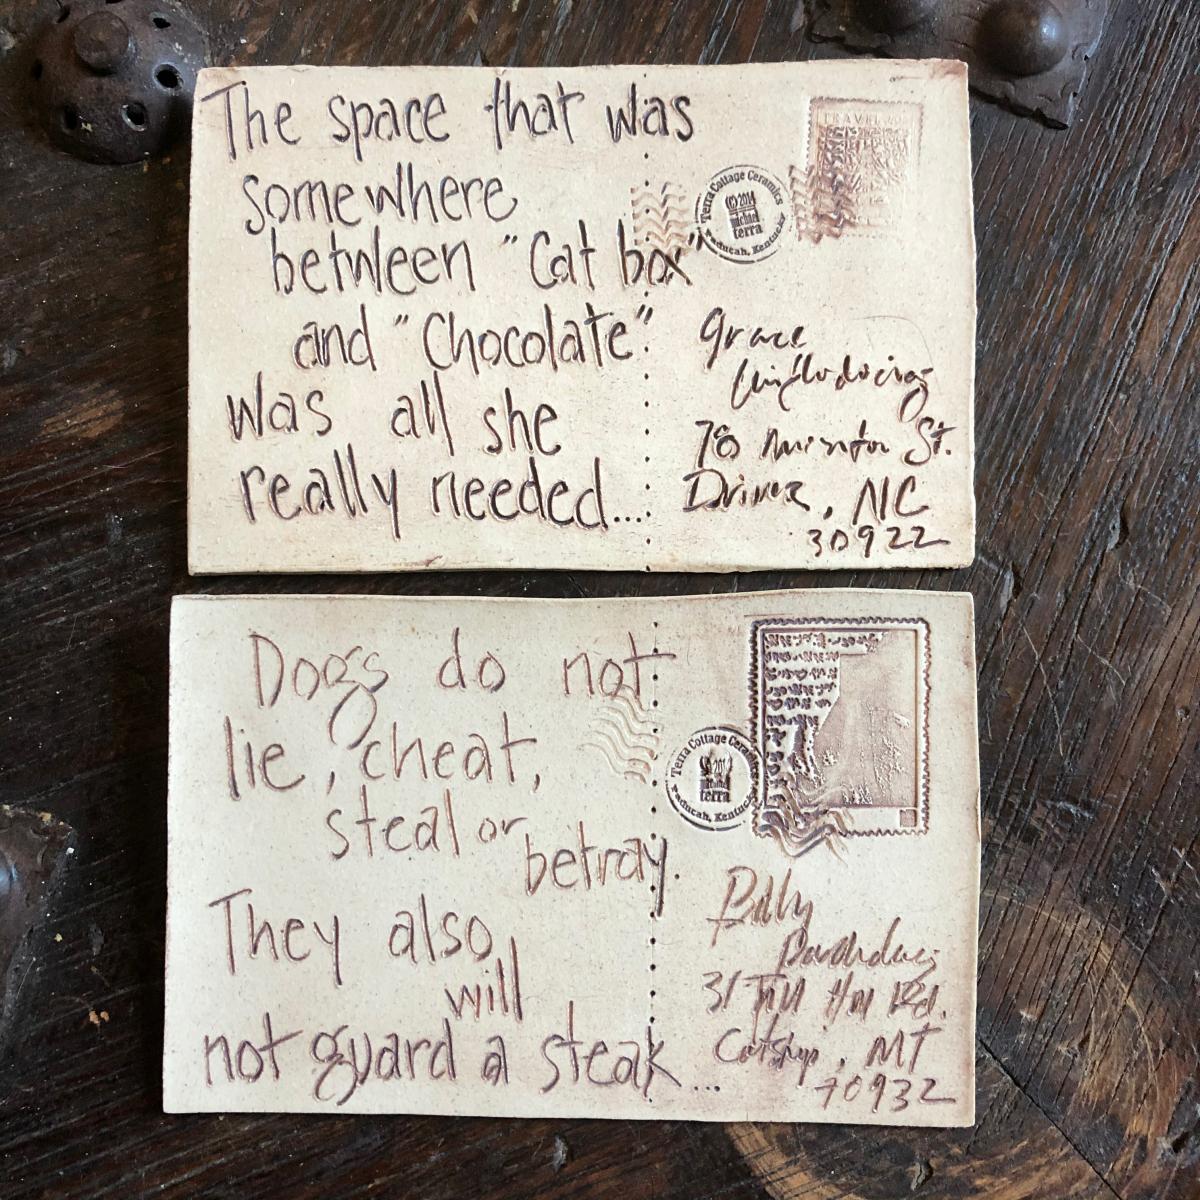 The space that was
somewhere
between "Cat box"
and "Chocolate"
was all she
really needed...
TRAVEL
Terra Cottage Ceramics
(C) 2014
michael
terra
Paducah, Kentucky
Grace
78 St.
NC
30922
Dogs do not
lie, cheat,
steal or
betray.
They also
will
not guard a steak...
Terra Cottage Ceramics
terra
Paducah, Kentucky
Billy
31 Rd.
MT
70932